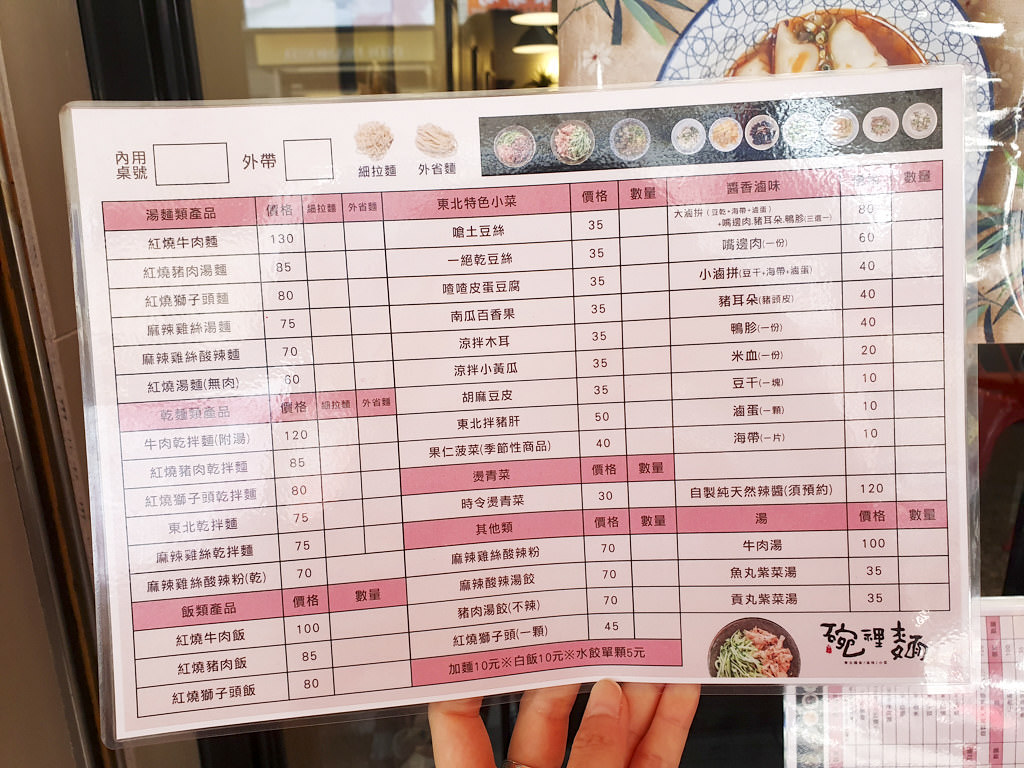 內用
桌號
外帶
細拉麵
外省麵
湯麵類產品 價格 細拉麵 外省麵
紅燒牛肉麵 130
紅燒豬肉湯麵 85
紅燒獅子頭麵 80
麻辣雞絲湯麵 75
麻辣雞絲酸辣麵 70
紅燒湯麵(無肉) 60
乾麵類產品 價格 細拉麵 外省麵
牛肉乾拌麵(附湯) 120
紅燒豬肉乾拌麵 85
紅燒獅子頭乾拌麵 80
東北乾拌麵 75
麻辣雞絲乾拌麵 75
麻辣雞絲酸辣粉(乾) 70
飯類產品 價格 數量
紅燒牛肉飯 100
紅燒豬肉飯 85
紅燒獅子頭飯 80
東北特色小菜 價格 數量
嗆土豆絲 35
一絕乾豆絲 35
喳喳皮蛋豆腐 35
南瓜百香果 35
涼拌木耳 35
涼拌小黃瓜 35
胡麻豆皮 35
東北拌豬肝 50
果仁菠菜(季節性商品) 40
燙青菜 價格 數量
時令燙青菜 30
其他類 價格 數量
麻辣雞絲酸辣粉 70
麻辣酸辣湯餃 70
豬肉湯餃(不辣) 70
紅燒獅子頭(一顆) 45
加麵10元※白飯10元※水餃單顆5元
醬香滷味 數量
大滷拼(豆乾+海帶+滷蛋) 80
+嘴邊肉.豬耳朵.鴨胗(三選一)
嘴邊肉(一份) 60
小滷拼(豆干+海帶+滷蛋) 40
豬耳朵(豬頭皮) 40
鴨胗(一份) 40
米血(一份) 20
豆干(一塊) 10
滷蛋(一顆) 10
海帶(一片) 10
自製純天然辣醬(須預約) 120
湯 價格 數量
牛肉湯 100
魚丸紫菜湯 35
貢丸紫菜湯 35
碗裡麵